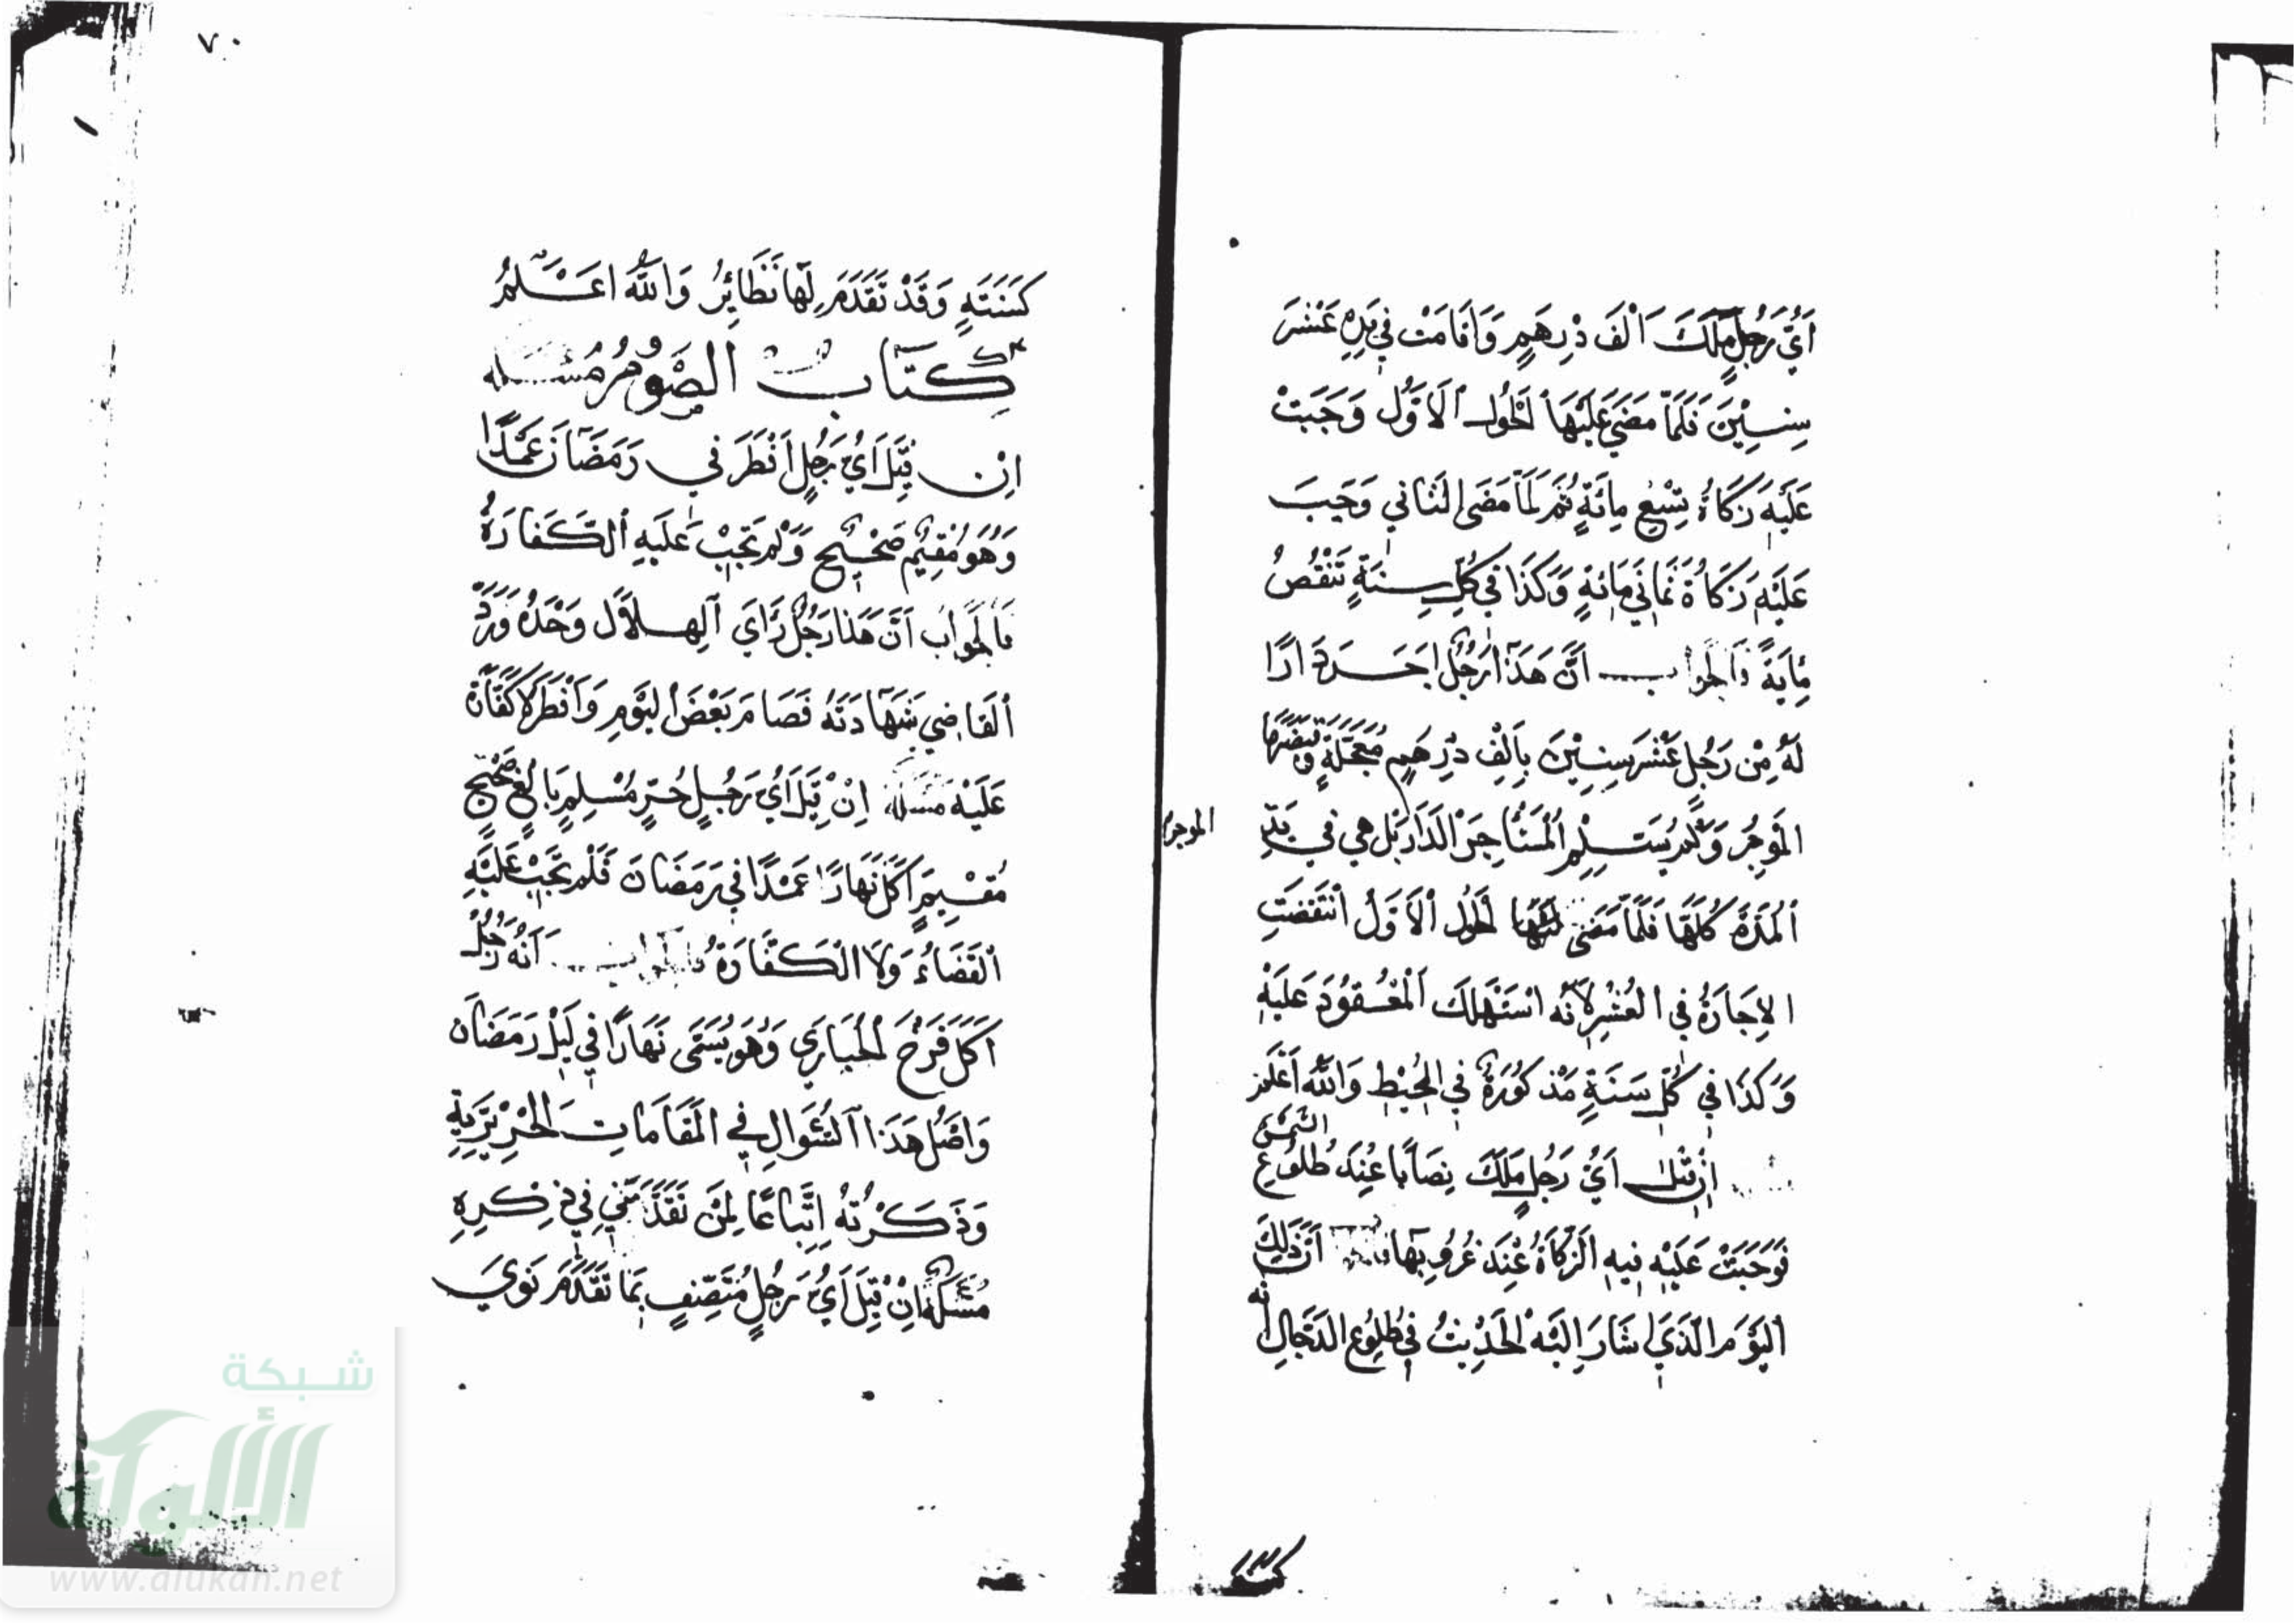 أَيُّ رَجُلٍ مَلَكَ أَلْفَ دِرْهَمٍ وَأَقَامَتْ فِي يَدِهِ عَشْرَ
سِنِيْنَ فَلَمَّا مَضَى عَلَيْهَا الْحُولُ الْأَوَّلُ وَجَبَتْ
عَلَيْهِ زَكَاةُ تِسْعِ مِائَةٍ ثُمَّ لَمَّا مَضَى الثَّانِي وَجَبَ
عَلَيْهِ زَكَاةُ ثَمَانِي مَائَةٍ وَكَذَا فِي كُلِّ سِنَةٍ تَنْقُصُ
مِايَةً فَالْجَوَابُ أَنَّ هَذَا رَجُلٌ اجَرَ دَارًا
لَهُ مِنْ رَجُلٍ عَشْرَ سِنِيْنَ بِأَلْفِ دِرْهَمٍ مُعَجَّلَةٍ وَقَبَضَهَا
الْمُوجِرُ وَلَمْ يُسَلِّمِ الْمُسْتَأْجِرَ الدَّارَ بَلْ هِيَ فِي يَدِ
الموجر
الْمُدَّةَ كُلَّهَا فَلَمَّا مَضَى لَهَا الْحُولُ الْأَوَّلُ انْتَقَضَتِ
الإِجَارَةُ فِي الْعُشْرِ لِأَنَّهُ اسْتَهْلَكَ الْمَعْقُودَ عَلَيْهِ
وَكَذَا فِي كُلِّ سَنَةٍ مَذْكُورَةٌ فِي الْمُحِيْطِ وَاللَّهُ أَعْلَم
إِنْ قِيْلَ أَيُّ رَجُلٍ مَلَكَ نِصَابًا عِنْدَ طُلُوعِ الشَّمْسِ
فَوَجَبَتْ عَلَيْهِ فِيهِ الزَّكَاةُ عِنْدَ غُرُوبِهَا أَنَّ ذَلِكَ
الْيَوْمَ الَّذِي اشَارَ إِلَيْهِ الْحَدِيثُ فِي طُلُوعِ الدَّجَّالِ أنه
٧٠
كَسَنَتِهِ وَقَدْ تَقَدَّمَ لَهَا نَظَائِرُ وَاللَّهُ اعَْلَمُ
كِتَابُ الصَّوْمِ مَسْئَلَة
اِنْ قِيْلَ أَيُّ رَجُلٍ أَفْطَرَ فِي رَمَضَانَ عَمْدًا
وَهُوَ مُقِيمٌ صَحِيحٌ وَلَمْ تَجِبْ عَلَيْهِ الْكَفَارَةُ
فَالْجَوَابُ أَنَّ هَذَا رَجُلٌ رَأَى الْهِلَالَ وَحْدَهُ وَرَدَّ
الْقَاضِي شَهَادَتَهُ فَصَامَ بَعْضَ الْيَوْمِ وَأَفْطَرَ لَا كَفَّارَة
عَلَيْهِ مَسْئَلَة إِنْ قِيْلَ أَيُّ رَجُلٍ حُرٍّ مُسْلِمٍ بَالِغٍ صَحِيْحٍ
مُقِيْمٍ أَكَلَ نَهَارًا عَمْدًا فِي رَمَضَانَ فَلَمْ تَجِبْ عَلَيْهِ
الْقَضَاءُ وَلَا الْكَفَّارَةُ فالجواب أَنَّهُ رَجُلٌ
أَكَلَ فَرْخَ الْحُبَارِي وَهُوَ يُسَمَّى نَهَارًا فِي لَيْلِ رَمَضَانَ
وَاصْلُ هَذَا السُّؤَالِ فِي الْمَقَامَاتِ الْحَرِيْرِيَّةِ
وَذَكَرْتُهُ اتِّبَاعًا لِمَنْ تَقَدَّمَنِي فِي ذِكْرِهِ
مَسْئَلَة إِنْ قِيْلَ أَيُّ رَجُلٍ مُتَّصِفٍ بِمَا تَقَدَّمَ نَوَي
شبكة
الألوكة
www.alukah.net